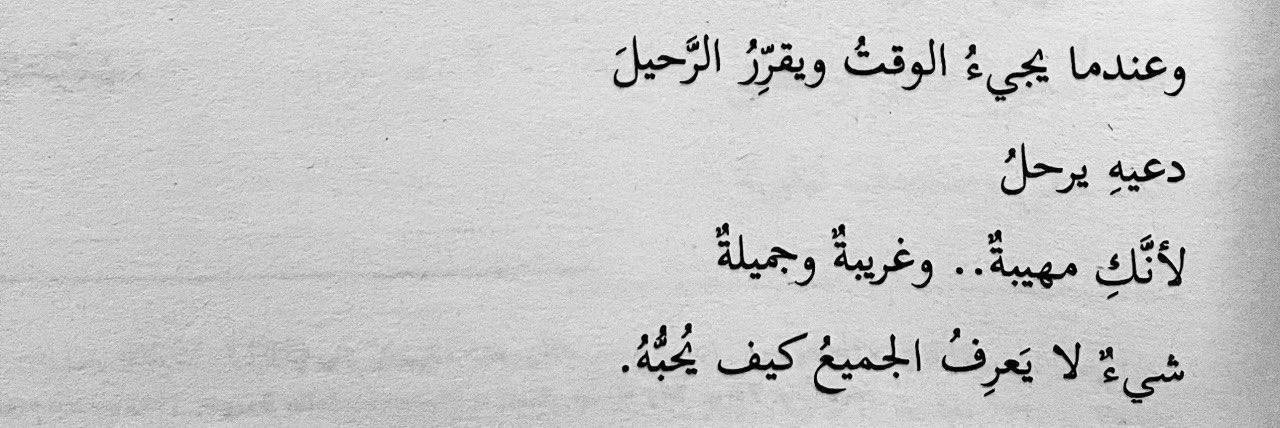 وعندما يجيءُ الوقتُ ويقرِّرُ الرَّحيلَ
دعيهِ يرحلُ
لأنَّكِ مهيبةٌ.. وغريبةٌ وجميلةٌ
شيءٌ لا يَعرِفُ الجميعُ كيف يُحبُّهُ.